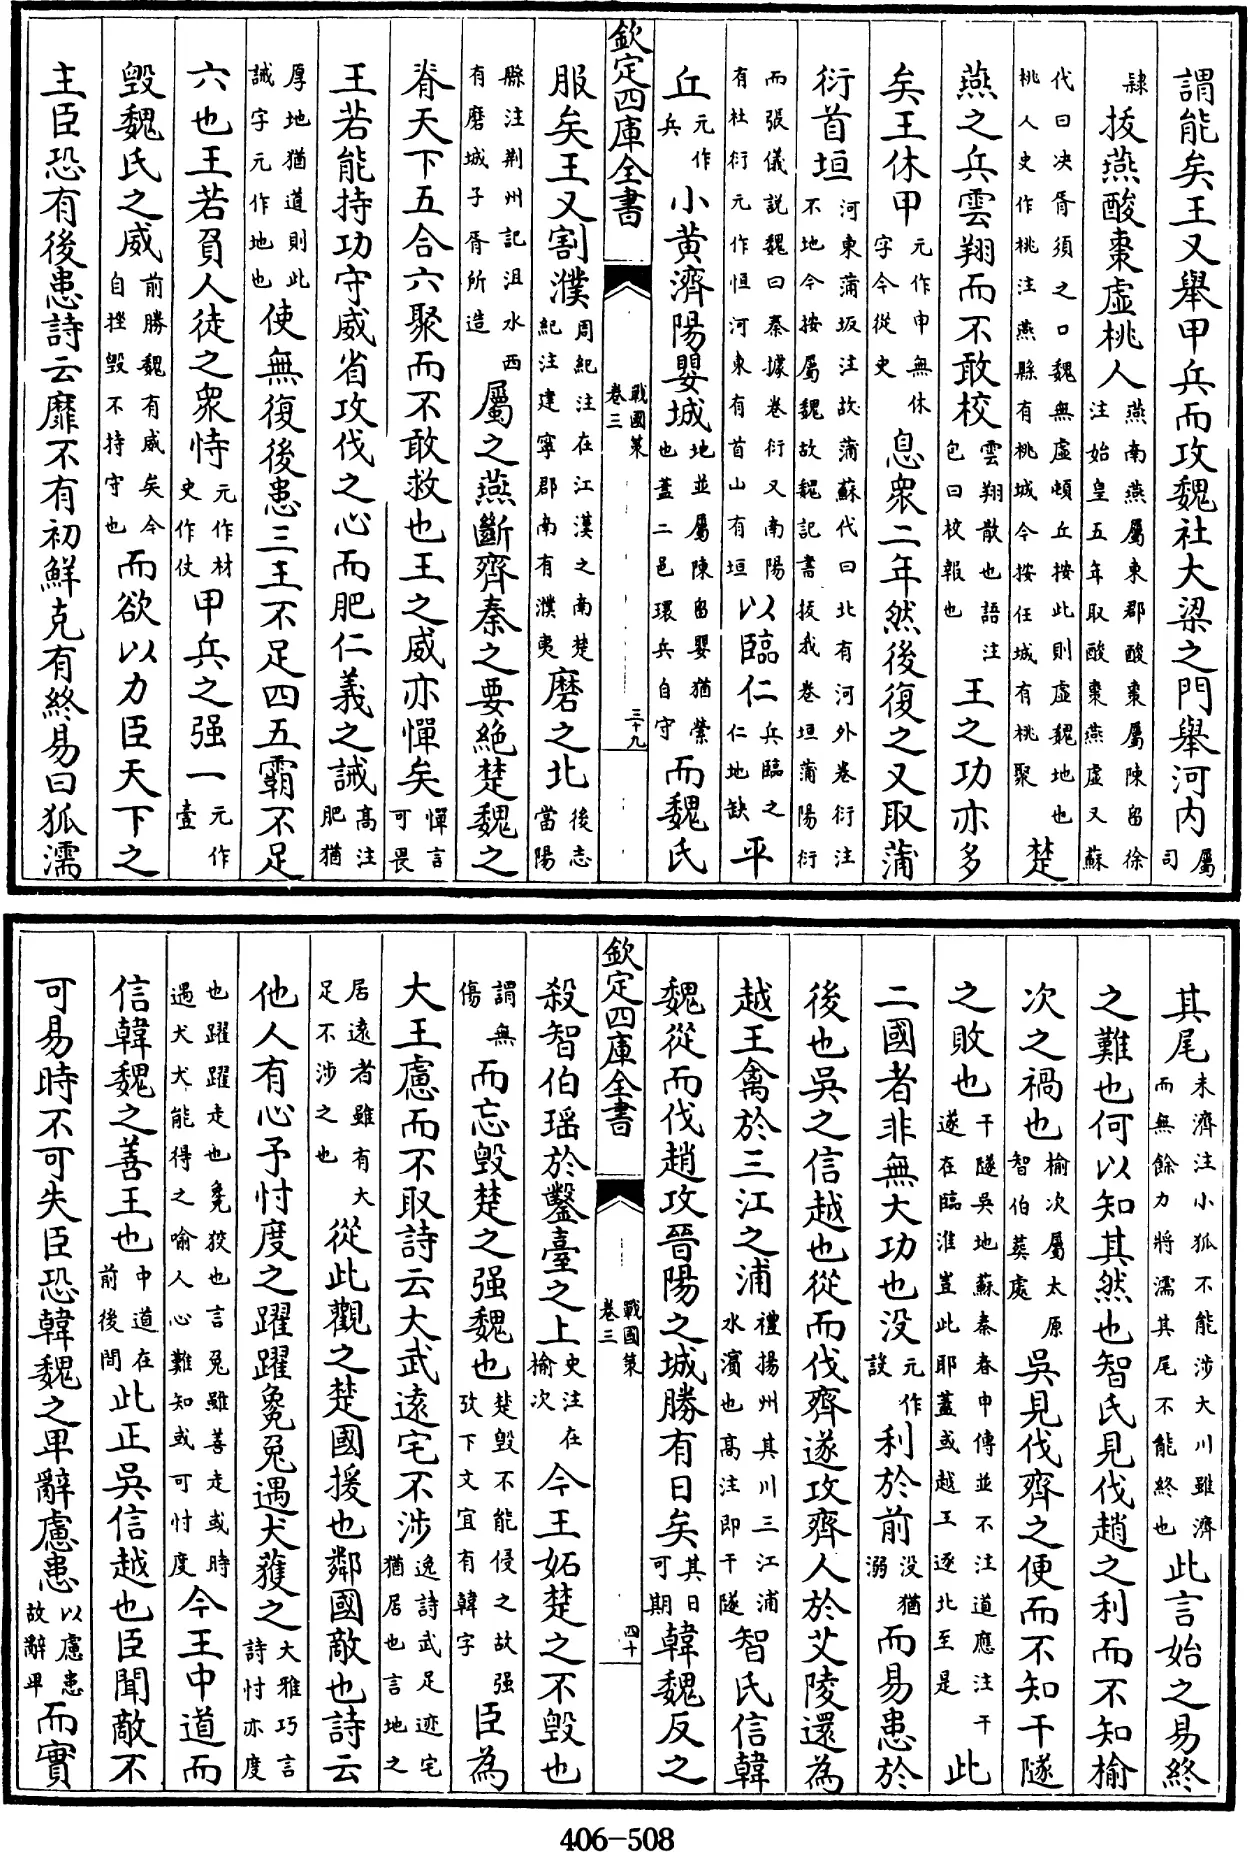 謂能矣王又舉甲兵而攻魏社大梁之門舉河内屬司
隸拔燕酸棗虛桃人燕南燕屬東郡酸棗屬陳留徐注始皇五年取酸棗燕虛又蘇
代曰决胥須之口魏無虛頓丘按此則虛魏地也桃人史作桃注燕縣有桃城今按任城有桃聚楚
燕之兵雲翔而不敢校雲翔散也語注包曰校報也王之功亦多
矣王休甲元作申無休字今從史息衆二年然後復之又取蒲
衍首垣河東蒲坂注故蒲蘇代曰北有河外卷衍注不地今按屬魏故魏記書拔我卷垣蒲陽衍
而張儀説魏曰秦據卷衍又南陽有杜衍元作恒河東有首山有垣以臨仁兵臨之仁地缺平
丘元作兵小黃濟陽嬰城地並屬陳留嬰猶縈也蓋二邑環兵自守而魏氏
欽定四庫全書
戰國策
卷三
三十九
服矣王又割濮周紀注在江漢之南楚紀注建寧郡南有濮夷磨之北後志當陽
縣注荆州記沮水西有磨城子胥所造屬之燕斷齊秦之要絶楚魏之
脊天下五合六聚而不敢救也王之威亦憚矣憚言可畏
王若能持功守威省攻伐之心而肥仁義之誡高注肥猶
厚地猶道則此誡字元作地也使無復後患三王不足四五霸不足
六也王若負人徒之衆恃元作材史作仗甲兵之强一元作壹
毁魏氏之威前勝魏有威矣今自挫毁不持守也而欲以力臣天下之
主臣恐有後患詩云靡不有初鮮克有終易曰狐濡
其尾未濟注小狐不能涉大川雖濟而無餘力將濡其尾不能終也此言始之易終
之難也何以知其然也智氏見伐趙之利而不知榆
次之禍也榆次屬太原智伯葬處吳見伐齊之便而不知干隧
之敗也干隧吳地蘇秦春申傳並不注道應注干遂在臨淮豈此耶蓋或越王逐北至是此
二國者非無大功也没元作設利於前没猶溺而易患於
後也吳之信越也從而伐齊遂攻齊人於艾陵還為
越王禽於三江之浦禮揚州其川三江浦水濱也高注即干隧智氏信韓
魏從而伐趙攻晉陽之城勝有日矣其日可期韓魏反之
欽定四庫全書
戰國策
卷三
四十
殺智伯瑶於鑿臺之上史注在榆次今王妬楚之不毁也
謂無傷而忘毁楚之强魏也楚毁不能侵之故强攷下文宜有韓字臣為
大王慮而不取詩云大武逺宅不涉逸詩武足迹宅猶居也言地之
居逺者雖有大足不涉之也從此觀之楚國援也鄰國敵也詩云
他人有心予忖度之躍躍毚兔遇犬獲之大雅巧言詩忖亦度
也躍躍走也毚狡也言兔雖善走或時遇犬犬能得之喻人心難知或可忖度今王中道而
信韓魏之善王也中道在前後間此正吳信越也臣聞敵不
可易時不可失臣恐韓魏之卑辭慮患以慮患故辭卑而實
406-508